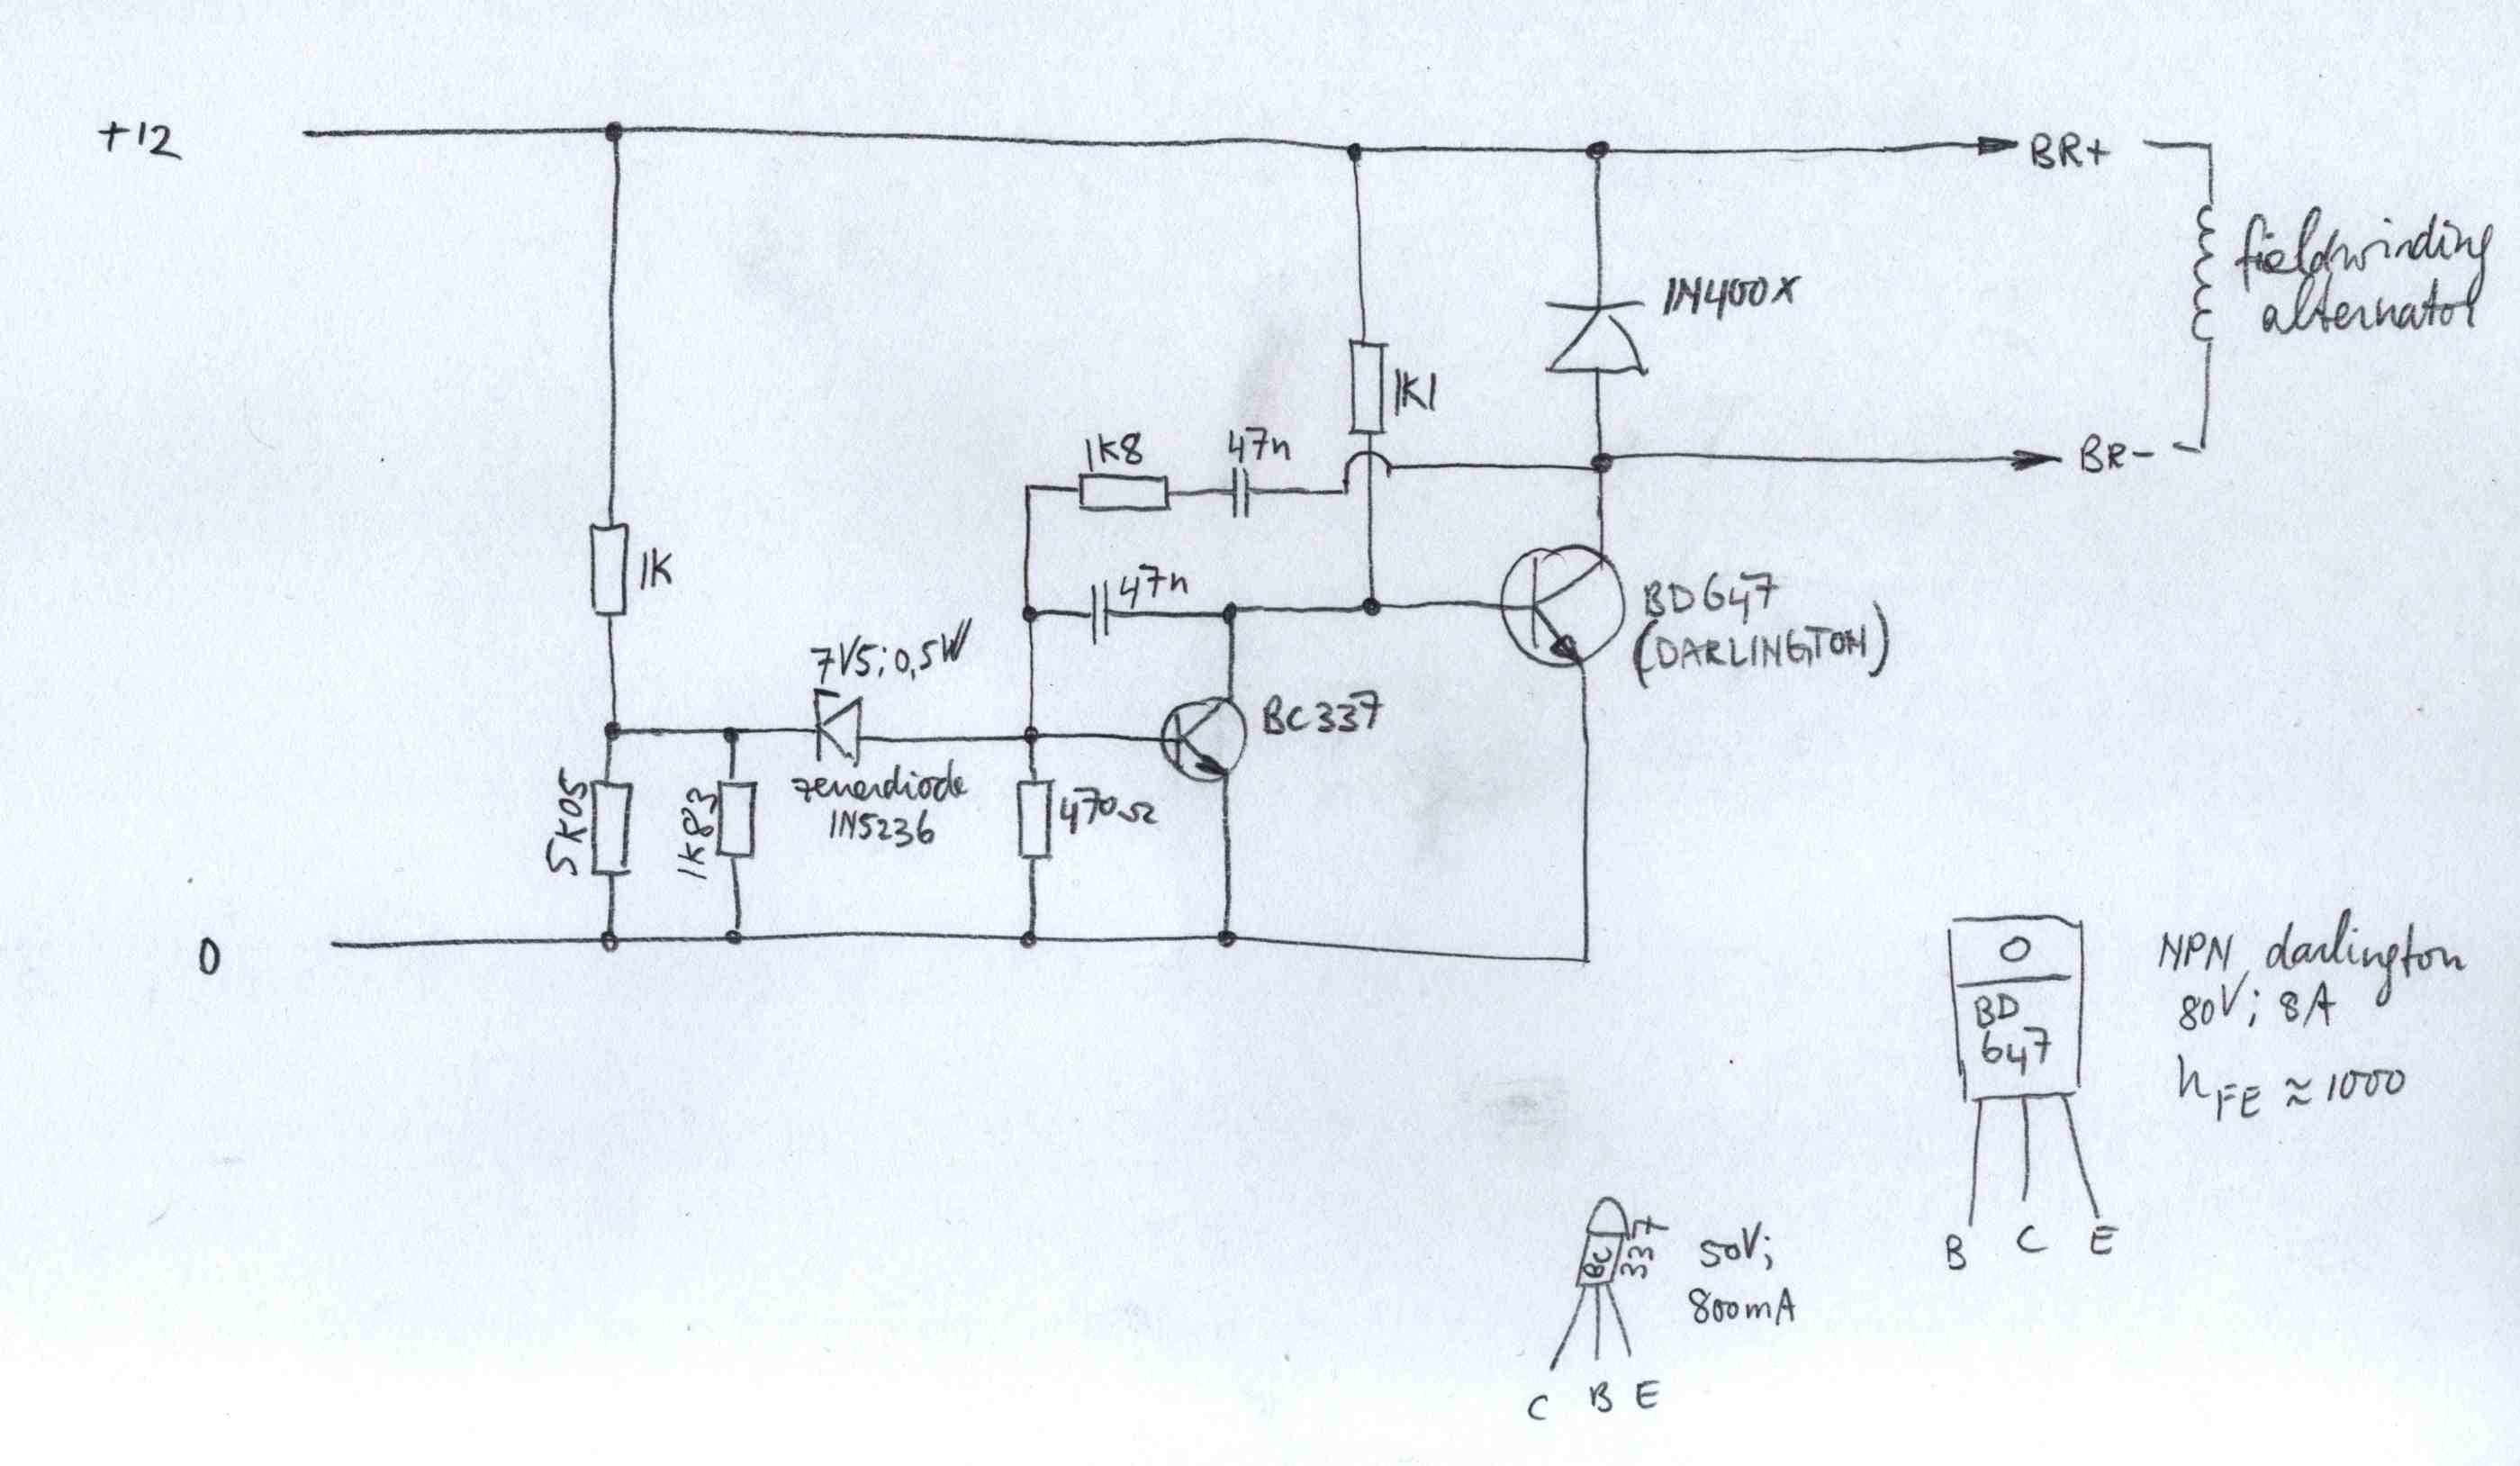 +12
BR+
fieldwinding
alternator
1N400X
1K1
BR-
1K8
47n
1K
47n
BD647
(DARLINGTON)
7V5; 0,5W
BC337
zenerdiode
1N5236
5K05
1K83
470Ω
0
O
BD
647
NPN darlington
80V; 8A
hFE ≈ 1000
B C E
BC
337
50V;
800mA
C B E